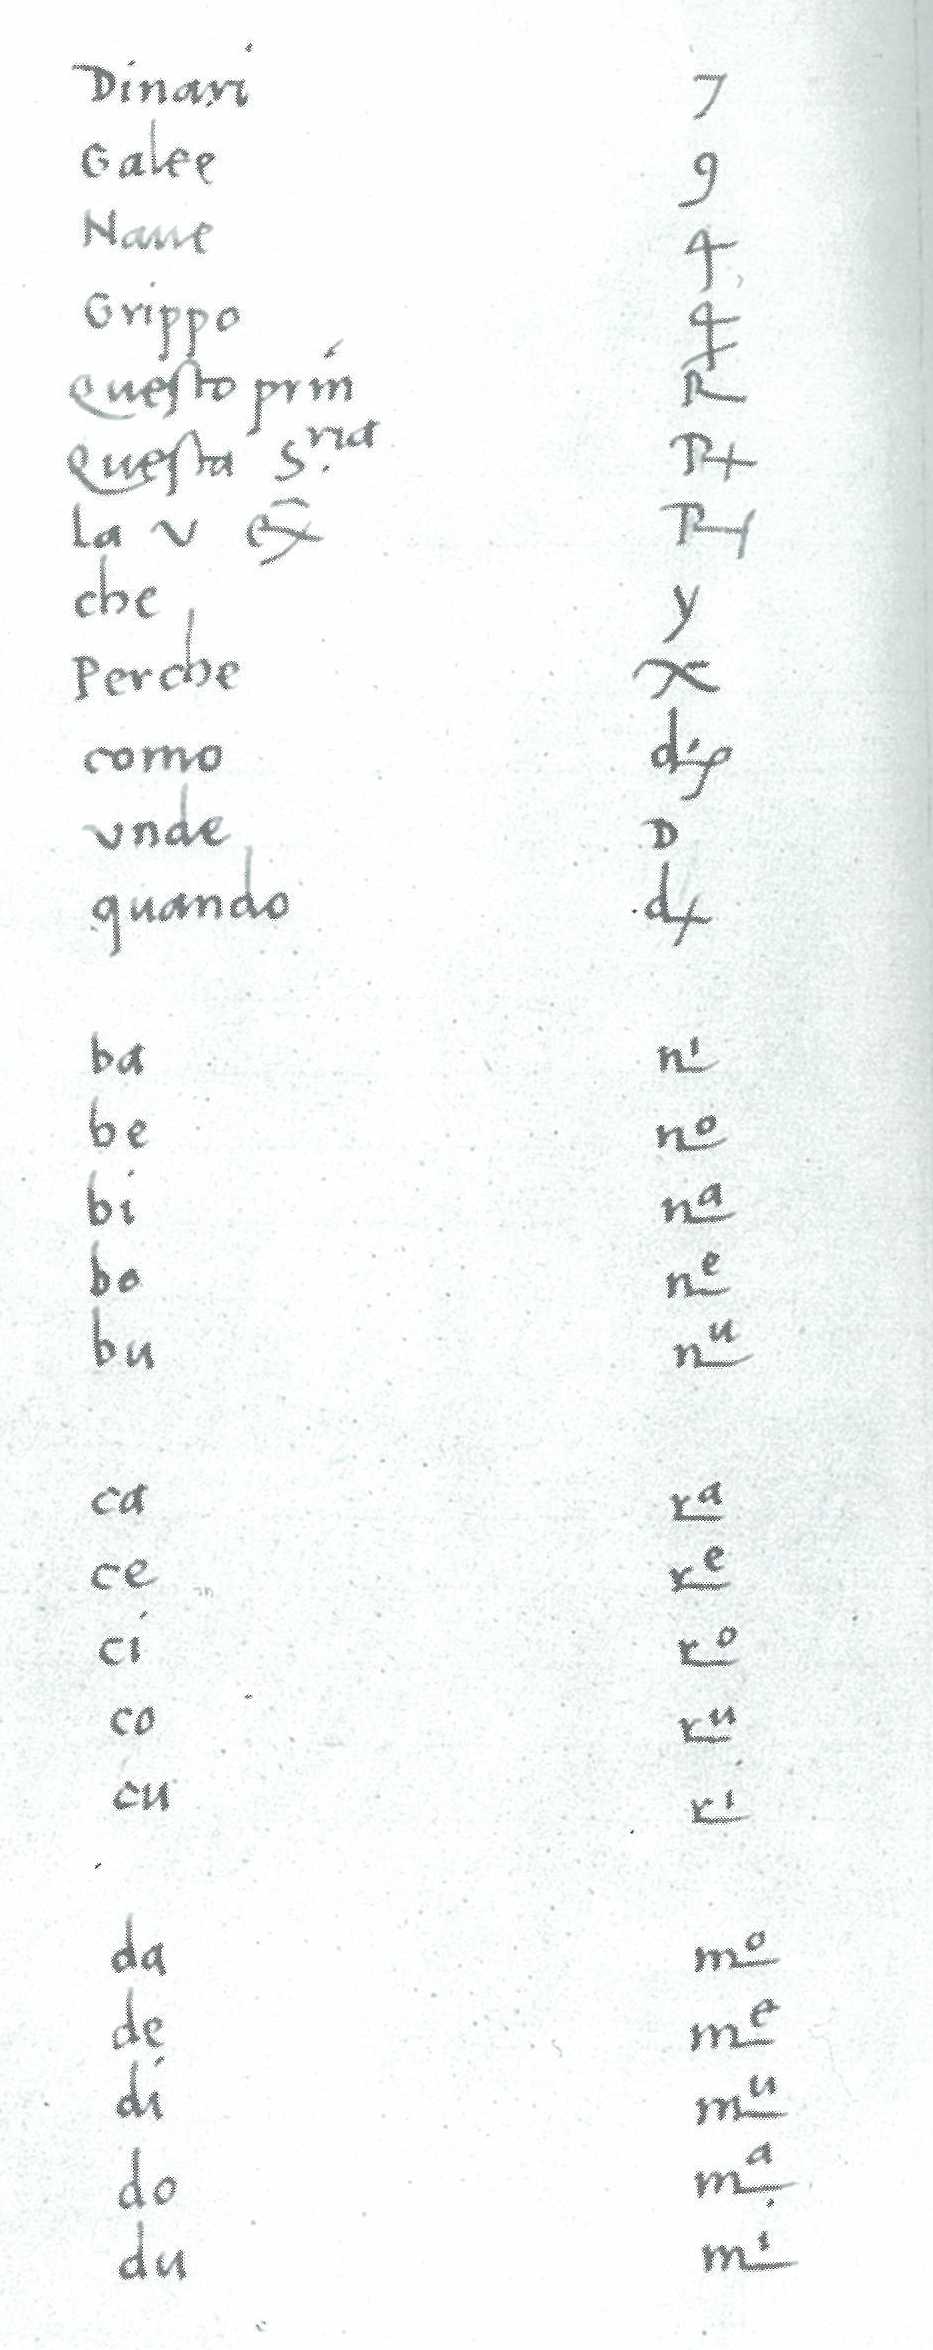 Dinari 7
Galee 9
Naue 4
Grippo 4
questo prin R
questa S.ria
la v ex
che y
Perche x
como
vnde D
quando dx
ba ni
be no
bi na
bo ne
bu nu
ca ra
ce re
ci ro
co ru
cu ri
da mo
de me
di mu
do ma
du mi